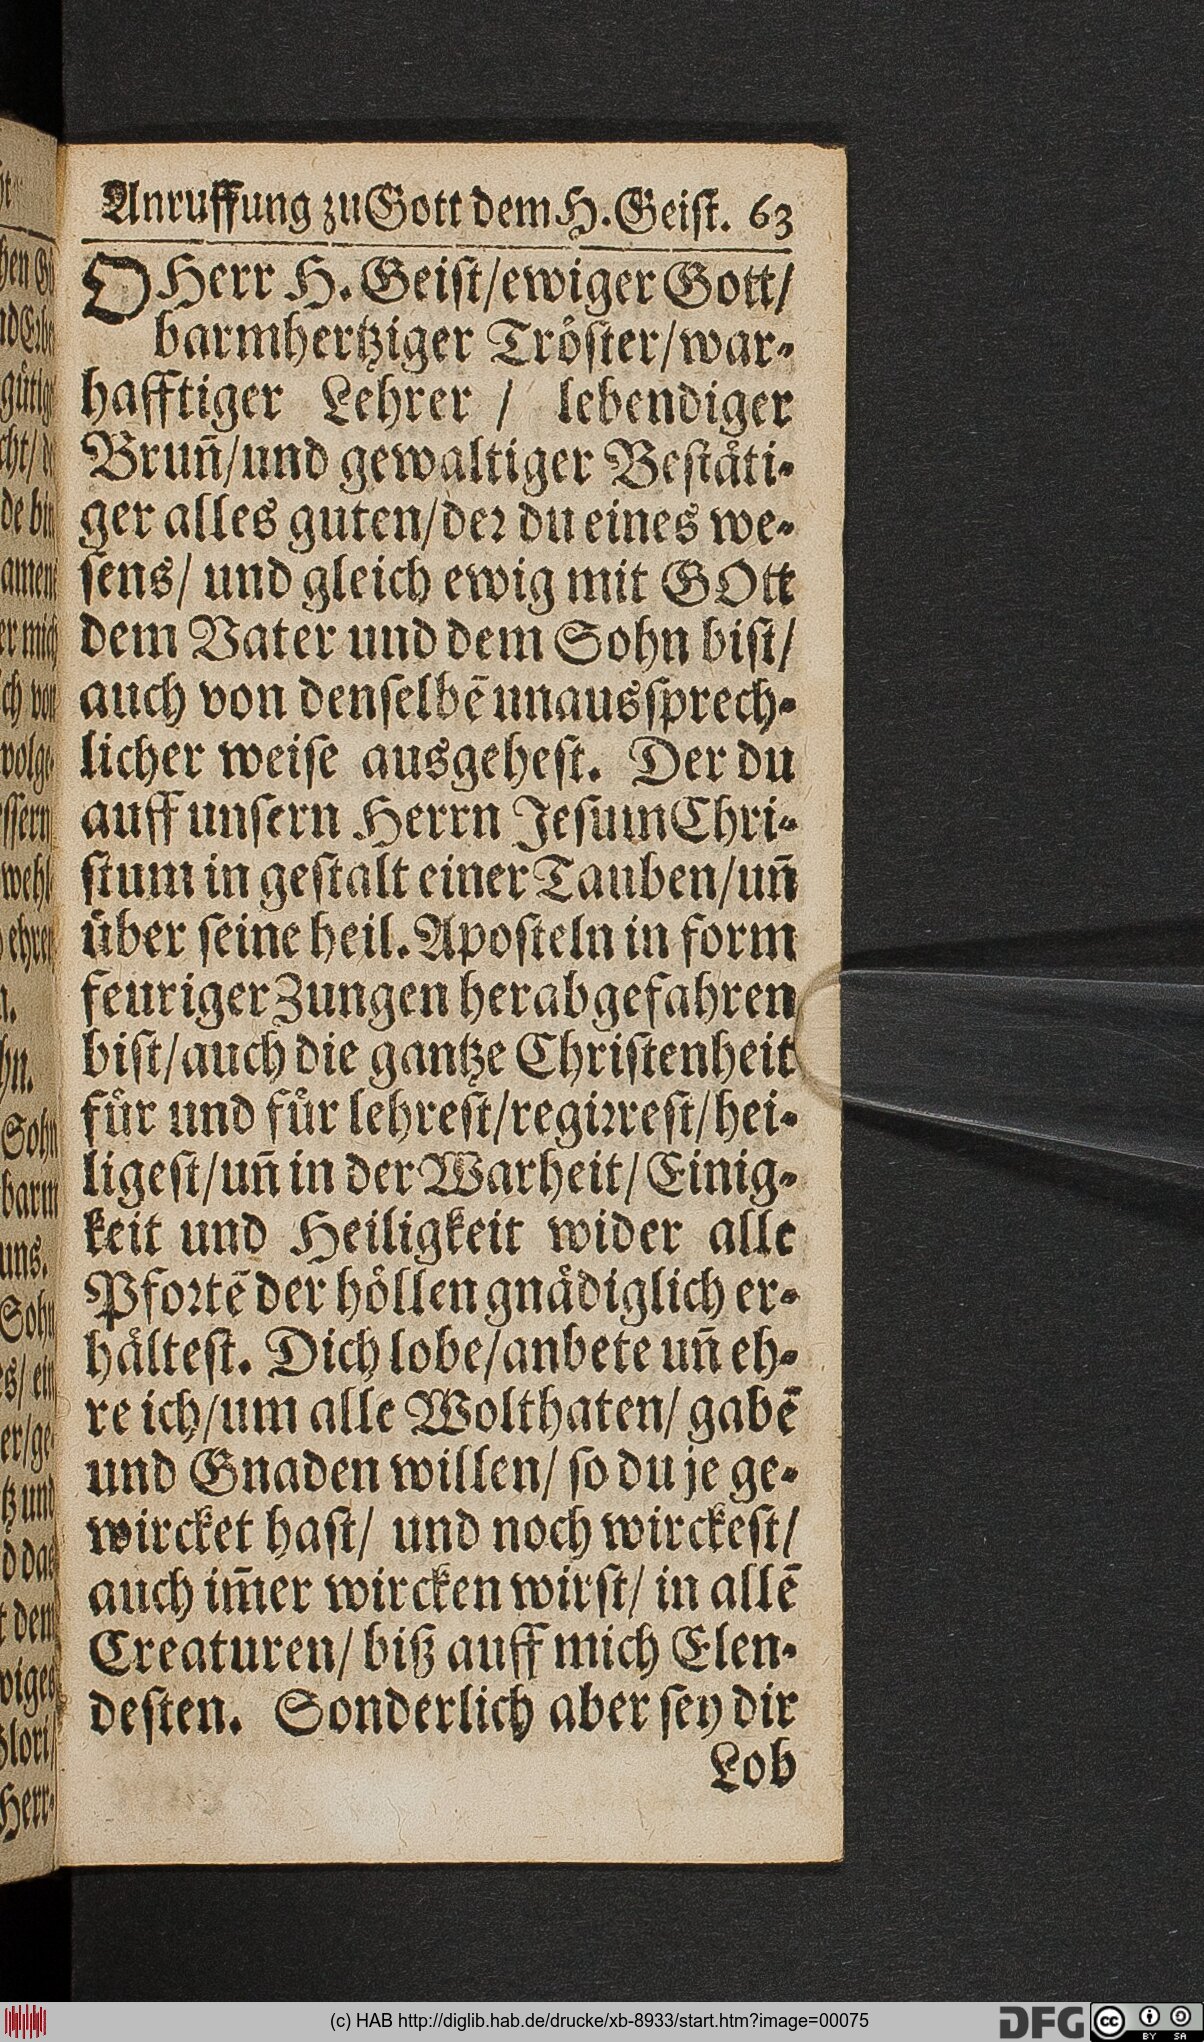 Anruffung zu Gott dem H. Geiſt. 63
O Herr H. Geiſt/ewiger Gott/
barmhertziger Troͤſter/war⸗
hafftiger Lehrer / lebendiger
Brun̄/und gewaltiger Beſtaͤti⸗
ger alles guten/deꝛ du eines we⸗
ſens/ und gleich ewig mit GOtt
dem Vater und dem Sohn biſt/
auch von denſelbē unausſprech⸗
licher weiſe ausgeheſt. Der du
auff unſern Herrn Jeſum Chri⸗
ſtum in geſtalt einer Tauben/un̄
uͤber ſeine heil. Apoſteln in form
feuriger Zungen herabgefahren
biſt/auch die gantze Chriſtenheit
fuͤr und fuͤr lehreſt/regiꝛreſt/hei⸗
ligeſt/un̄ in der Warheit/Einig⸗
keit und Heiligkeit wider alle
Pfoꝛtē der hoͤllen gnaͤdiglich er⸗
haͤlteſt. Dich lobe/anbete un̄ eh⸗
re ich/um alle Wolthaten/ gabē
und Gnaden willen/ ſo du je ge⸗
wircket haſt/ und noch wirckeſt/
auch im̄er wircken wirſt/ in allē
Creaturen/ biß auff mich Elen⸗
deſten. Sonderlich aber ſey dir
Lob
(c) HAB http://diglib.hab.de/drucke/xb-8933/start.htm?image=00075
DFG
cc
BY SA